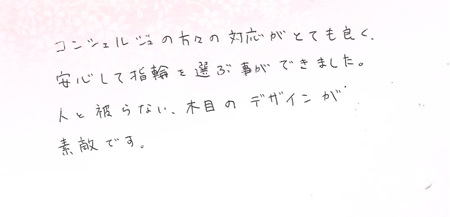 コンシェルジュの方々の対応がとても良く、
安心して指輪を選ぶ事ができました。
人と被らない、木目のデザインが
素敵です。